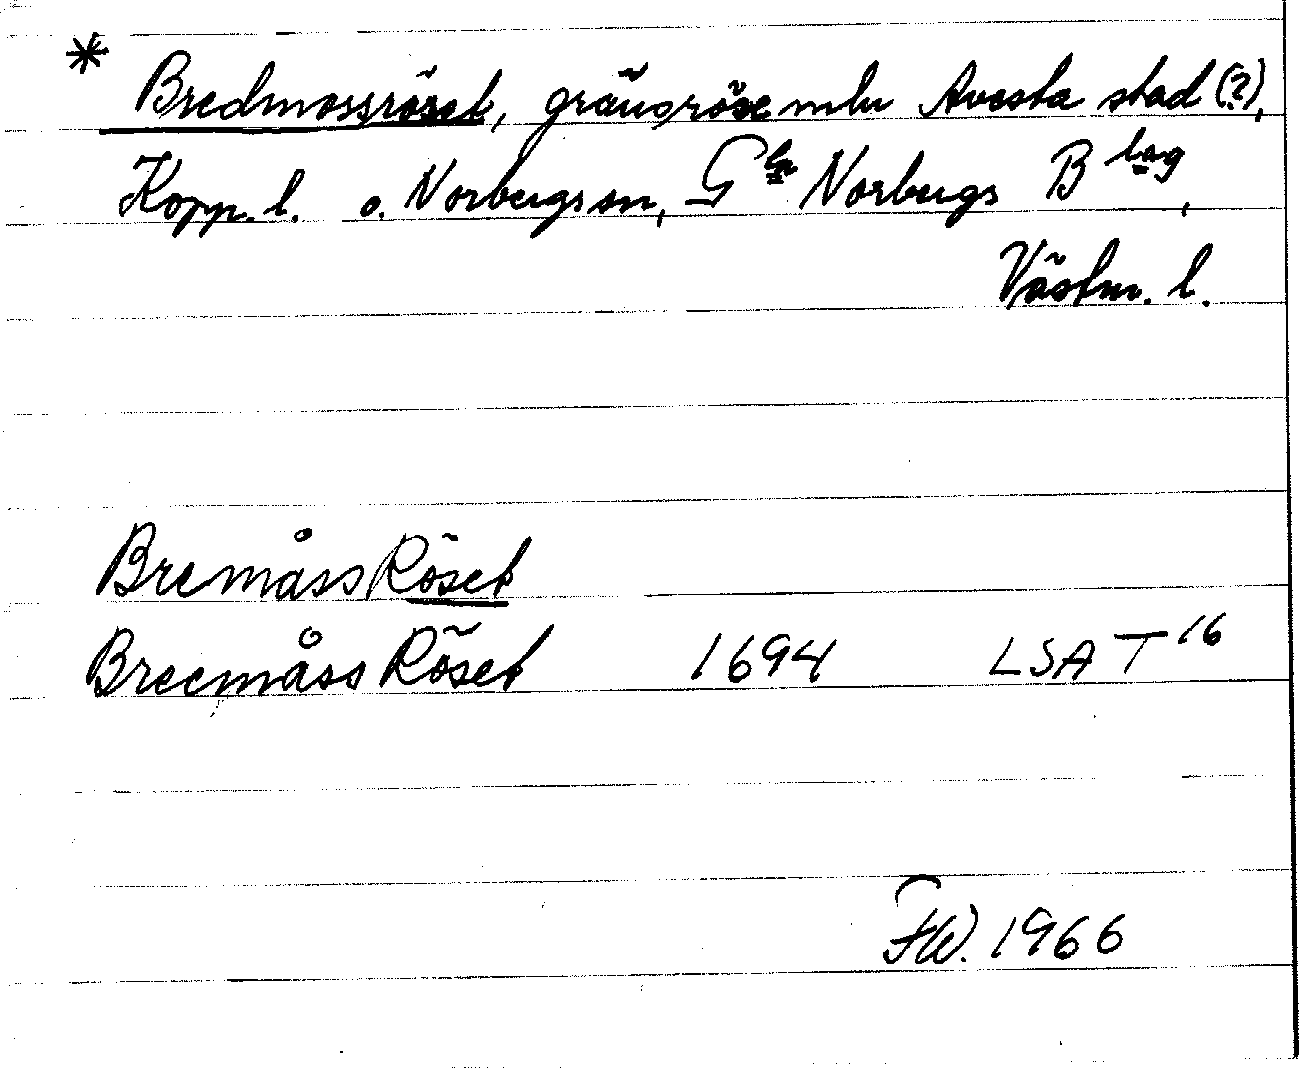 * Bredmossröset, gränsröse mln Avesta stad (?),
Kopp. l. o. Norbergs sn, G:la Norbergs Blag,
Västm. l.
BremåssRöset
Breemåss Röset 1694 LSA T16
FW. 1966